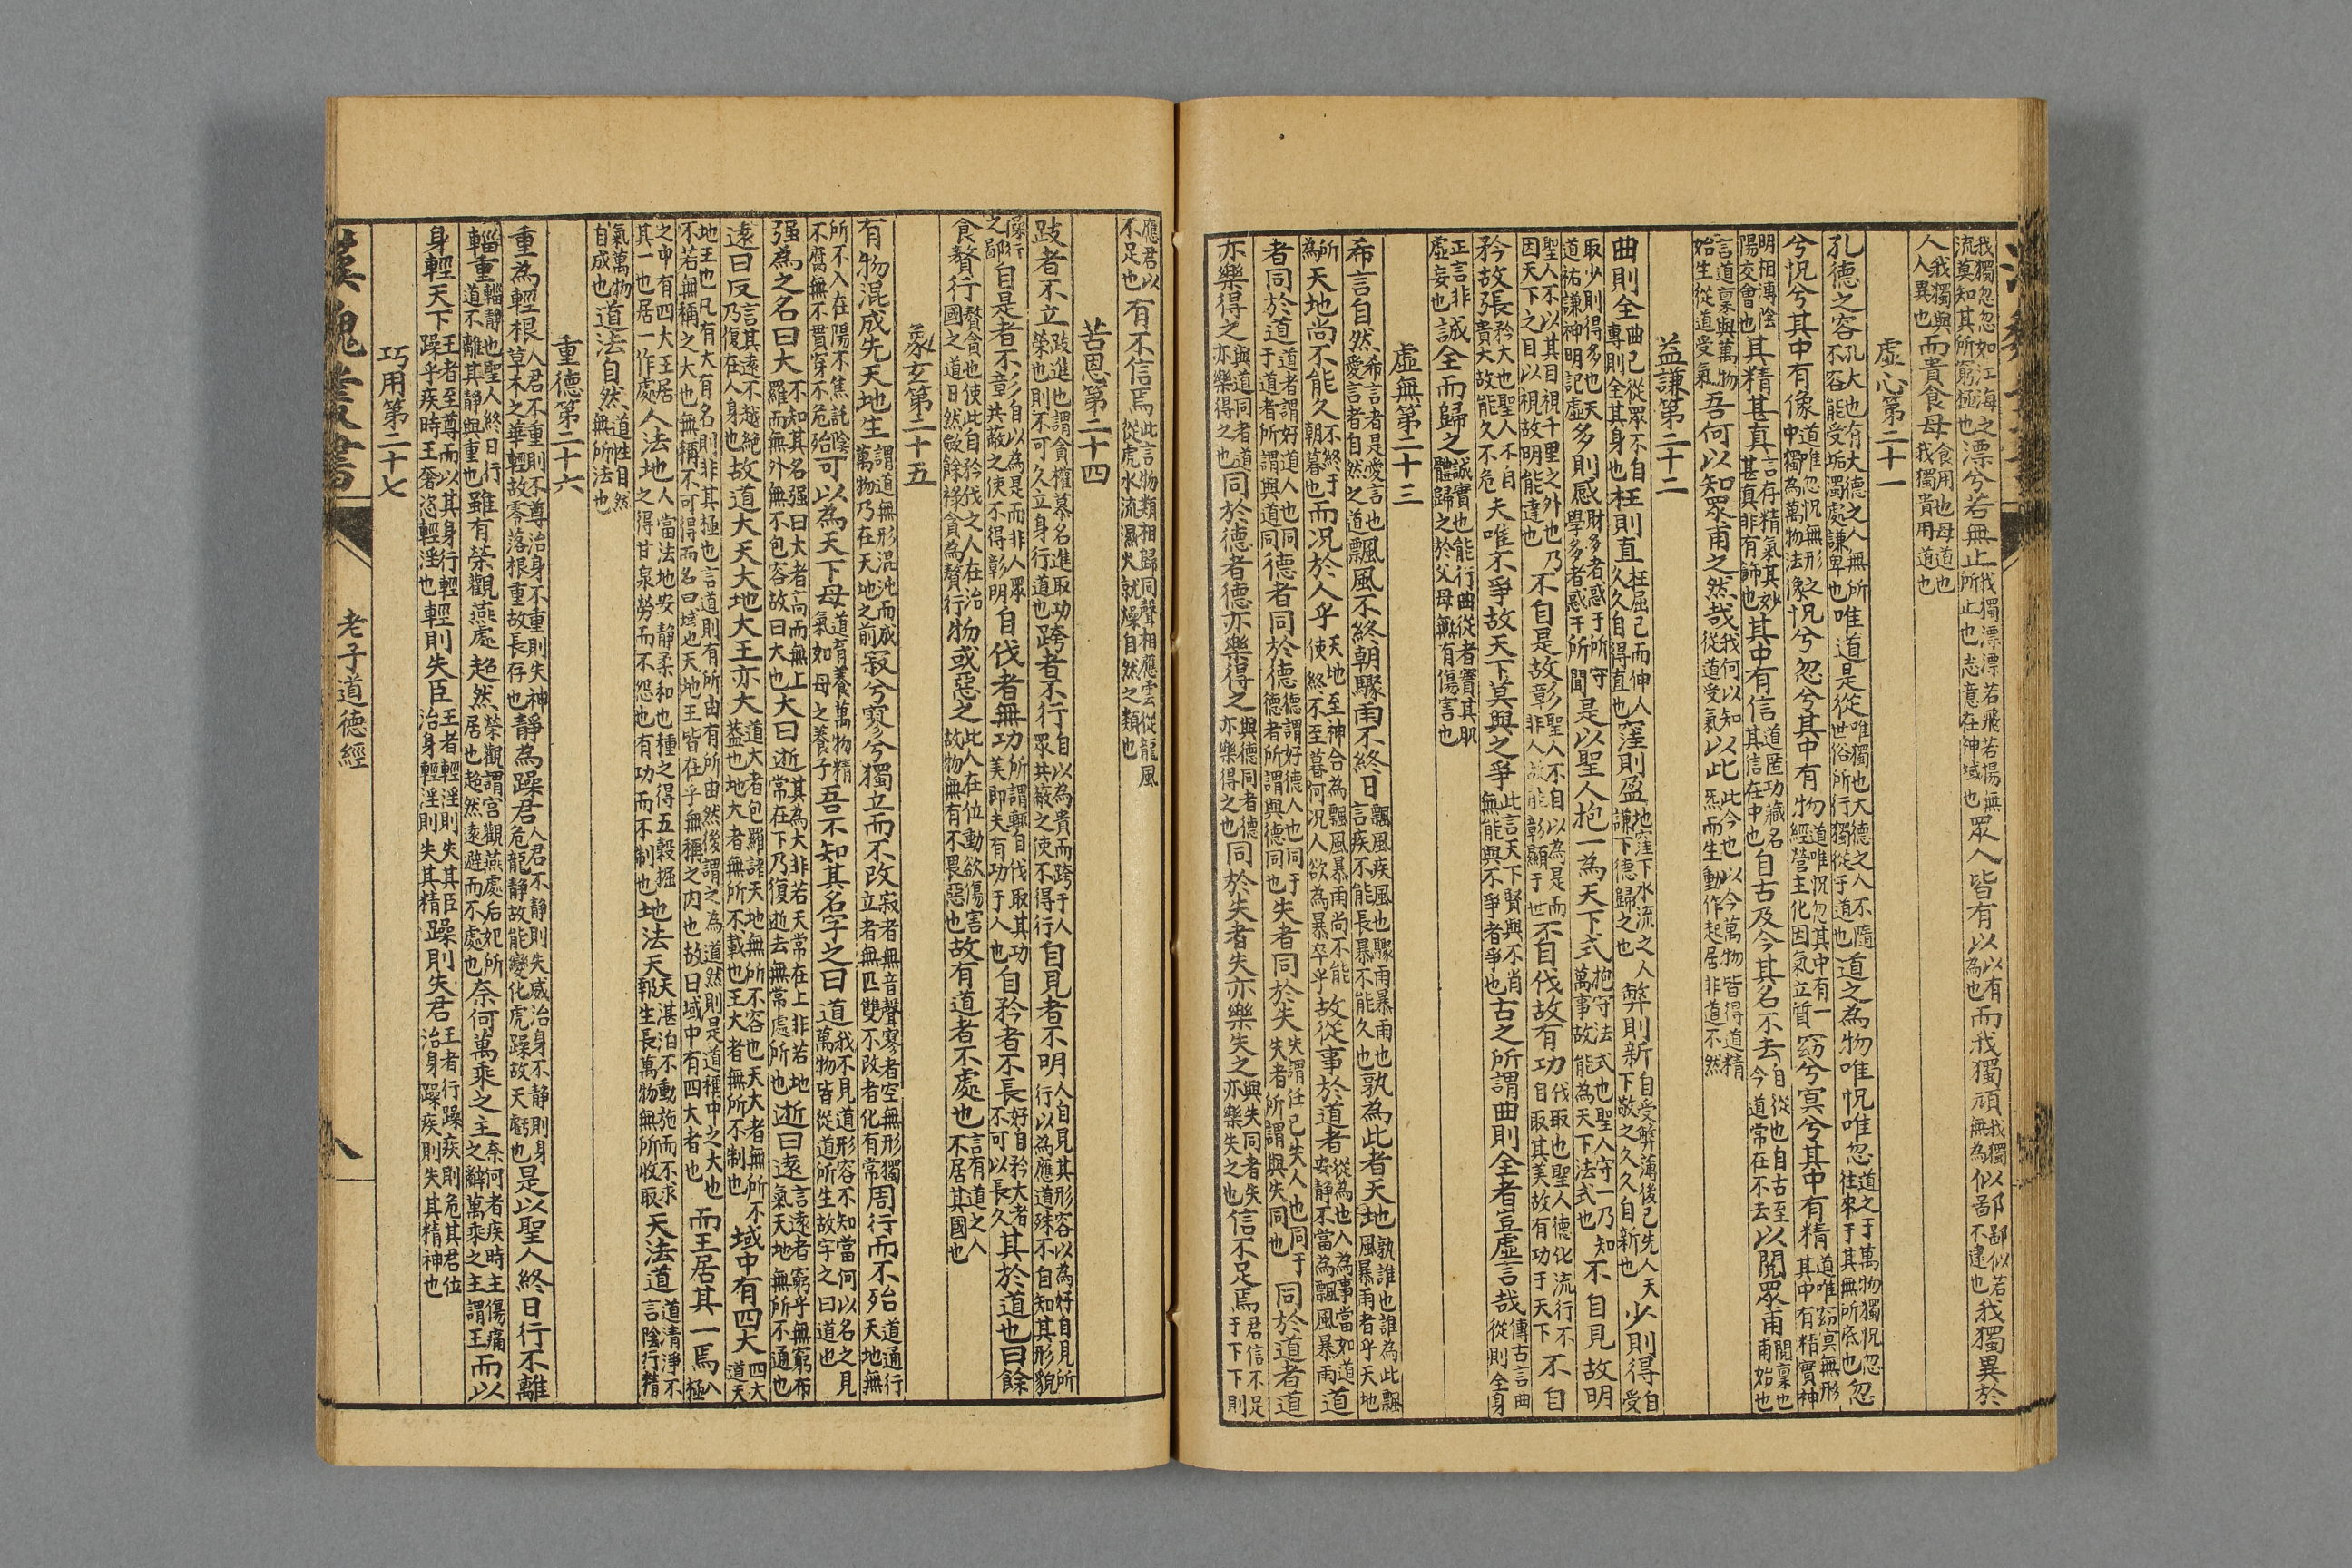 我獨忽忽如江海之流莫知其所窮極也漂兮若無止我獨漂漂若飛若揚無所止也志意在神域也眾人皆有以以有為也而我獨頑我獨無為似鄙鄙似若不逮也我獨異於
人我獨與人異也而貴食母食用也母道也我獨貴用道也
虛心第二十一
孔德之容孔大也有大德之人無所不容能受垢濁處謙卑也唯道是從唯獨也大德之人不隨世俗所行獨從于道也道之為物唯怳唯忽道之于萬物獨怳忽往來于其無所底也忽
兮怳兮其中有像道唯忽怳無形之中獨為萬物法像怳兮忽兮其中有物道唯怳忽其中有一經營主化因氣立質窈兮冥兮其中有精道唯窈冥無形其中有精實神
明相溥陰陽交會也其精甚真言存精氣其妙甚真非有飾也其中有信道匿功藏名其信在中也自古及今其名不去自從也自古至今道常在不去以閱眾甫閱稟也甫始也
言道稟與萬物始生從道受氣吾何以知眾甫之然哉我何以知從道受氣以此此今也以今萬物皆得道精炁而生動作起居非道不然
益謙第二十二
曲則全曲己從眾不自專則全其身也枉則直枉屈己而伸人久久自得直也窪則盈地窪下水流之人謙下德歸之也弊則新自受弊薄後己先人天下敬之久久自新也少則得自受
取少則得多也天道祐謙神明託虛多則惑財多者惑于所守學多者惑于所聞是以聖人抱一為天下式抱守法式也聖人守一乃知萬事故能為天下法式也不自見故明
聖人不以其目視千里之外也乃因天下之目以視故明能達也不自是故彰聖人不自以為是而非人故能彰顯于世不自伐故有功伐取也聖人德化流行不自取其美故有功于天下不自
矜故長矜大也聖人不自貴大故能久不危夫唯不爭故天下莫與之爭此言天下賢與不肖無能與不爭者爭也古之所謂曲則全者豈虛言哉傳古言曲從則全身
正言非虛妄也誠全而歸之誠實也能行曲從者實其肌體歸之於父母無有傷害也
虛無第二十三
希言自然希言者是愛言也愛言者自然之道飄風不終朝驟雨不終日飄風疾風也驟雨暴雨也言疾不能長暴不能久也孰為此者天地孰誰也誰為此飄風暴雨者乎天地
所為天地尚不能久不終于朝暮也而況於人乎天地至神合為飄風暴雨尚不能使終不至暮何況人欲為暴卒乎故從事於道者從為也人為事當如道安靜不當為飄風暴雨道
者同於道道者謂好道人也同于道者所謂與道同德者同於德德謂好德人也同于德者所謂與德同也失者同於失失謂任己失人也同于失者所謂與失同也同於道者道
亦樂得之與道同者道亦樂得之也同於德者德亦樂得之與德同者德亦樂得之也同於失者失亦樂失之與失同者失亦樂失之也信不足焉君信不足于下下則
應君以不足也有不信焉此言物類相歸同聲相應雲從龍風從虎水流濕火就燥自然之類也
苦恩第二十四
跂者不立跂進也謂貪權慕名進取功榮也則不可久立身行道也跨者不行自以為貴而跨于人眾共蔽之使不得行自見者不明人自見其形容以為好自見所行以為應道殊不自知其形貌
操行之鄙自是者不彰自以為是而非人眾共蔽之使不得彰明自伐者無功所謂輒自伐取其功美即失有功于人也自矜者不長好自矜大者不可以長久其於道也曰餘
食贅行贅貪也使此自矜伐之人在治國之道日然斂餘祿食為貪行物或惡之此人在位動欲傷害故物無有不畏惡也故有道者不處也言有道之人不居其國也
象玄第二十五
有物混成先天地生謂道無形混沌而成萬物乃在天地之前寂兮寥兮獨立而不改寂者無音聲寥者空無形獨立者無匹雙不改者化有常周行而不殆道通行天地無
所不入在陽不焦託陰不腐無不貫穿不危殆可以為天下母道育養萬物精氣如母之養子吾不知其名字之曰道我不見道形容不知當何以名之見萬物皆從道所生故字之曰道也
强為之名曰大不知其名强曰大者高而無上羅而無外無不包容故曰大也大曰逝其為大非若天常在上非若地常在下乃復逝去無常處所也逝曰遠言遠者窮乎無窮布氣天地無所不通也
遠曰反言其遠不越絕乃復在人身也故道大天大地大王亦大道大者包羅諸天地無所不容也天大者無所不蓋也地大者無所不載也王大者無所不制也域中有四大四大道天
地王也凡有大有名則非其極也言道則有所由有所由然後謂之為道然則是道稱中之大也不若無稱之大也無稱不可得而名曰域也天地王皆在乎無稱之內也故曰域中有四大者也而王居其一焉八極
之中有四大王居其一也居一作處人法地人當法地安靜柔和也種之得五穀掘之得甘泉勞而不怨也有功而不制也地法天天湛泊不動施而不求報生長萬物無所收取天法道道清淨不言陰行精
氣萬物自成也道法自然道性自然無所法也
重德第二十六
重為輕根人君不重則不尊治身不重則失神草木之華輕故零落根重故長存也靜為躁君人君不靜則失威治身不靜則身危龍靜故能變化虎躁故夭虧也是以聖人終日行不離
輜重輜靜也聖人終日行道不離其靜與重也雖有榮觀燕處超然榮觀謂宮觀燕處后妃所居也超然遠避而不處也奈何萬乘之主奈何者疾時主傷痛之辭萬乘之主謂王而以
身輕天下王者至尊而以其身行輕躁乎疾時王奢恣輕淫也輕則失臣王者輕淫則失其臣治身輕淫則失其精躁則失君王者行躁疾則危其君位治身躁疾則失其精神也
巧用第二十七
漢魏叢書 老子道德經 八